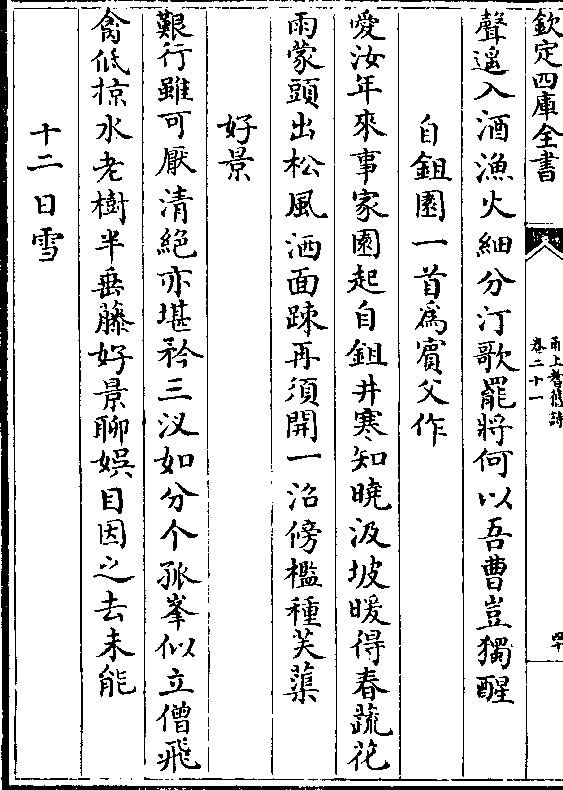 欽定四庫全書
甬上耆舊詩
卷二十一
四十
聲遥入酒漁火細分汀歌罷將何以吾曹豈獨醒
自鉏園一首爲賓父作
愛汝年來事家園起自鉏井寒知曉汲坡暖得春蔬花
雨蒙頭出松風洒面踈再須開一沼傍檻種芙蕖
好景
艱行雖可厭清絶亦堪矜三汊如分个孤峯似立僧飛
禽低掠水老樹半垂藤好景聊娛目因之去未能
十二日雪